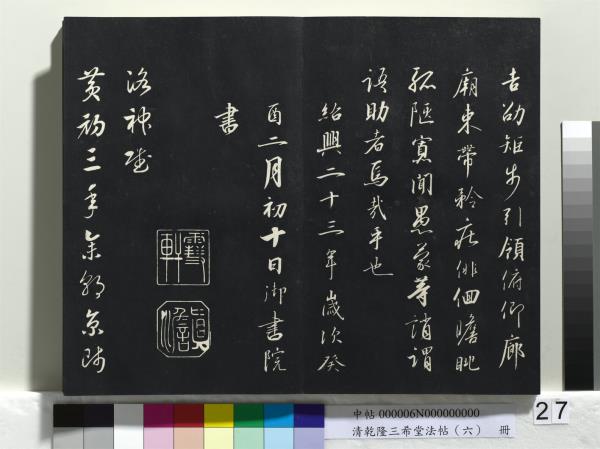 吉劭矩步引領俯仰廊
廟束帶矜莊俳佪瞻眺
孤陋寡聞愚蒙等誚謂
語助者焉哉乎也
紹興二十三年歲次癸
酉二月初十日御書院
書
洛神賦
黃初三年余朝京師
中帖 000006N000000000
清乾隆三希堂法帖(六) 冊
27